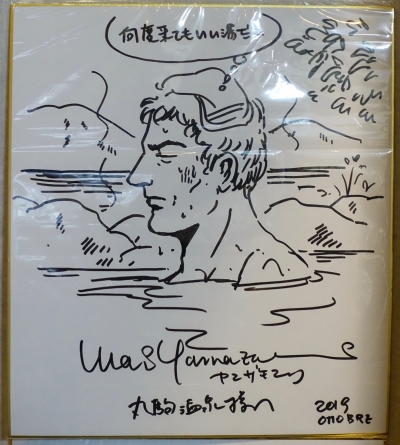 何度来てもいい湯だ…
Mari Yamazaki
ヤマザキマリ
丸駒温泉様へ
2019
OTTOBRE